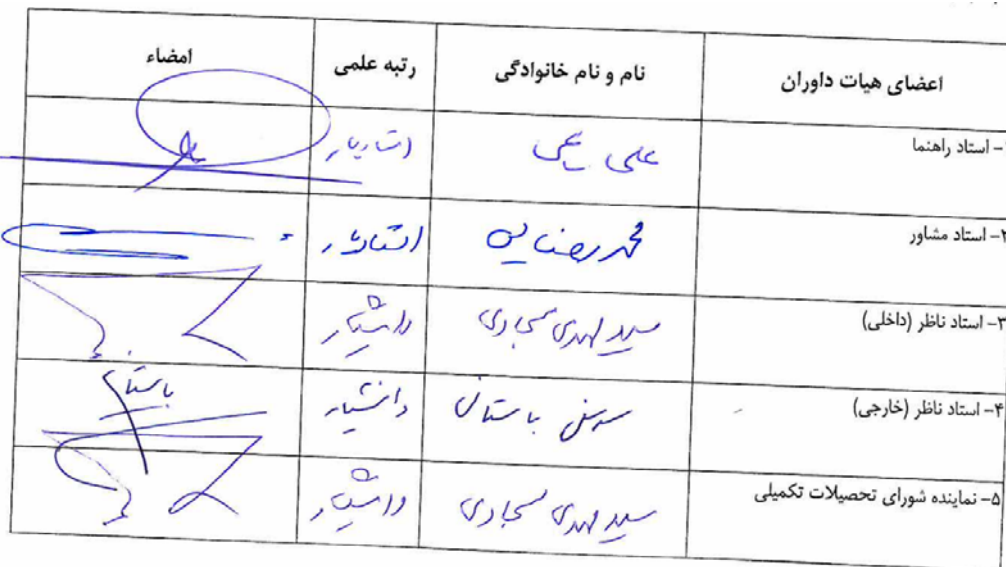 اعضای هیات داوران نام و نام خانوادگی رتبه علمی امضاء
۱- استاد راهنما علی استادیار
۲- استاد مشاور محمدرضا استادیار
۳- استاد ناظر (داخلی) سید مهدی سجادی دانشیار
۴- استاد ناظر (خارجی) سوسن باستانی دانشیار باستانی
۵- نماینده شورای تحصیلات تکمیلی سید مهدی سجادی دانشیار